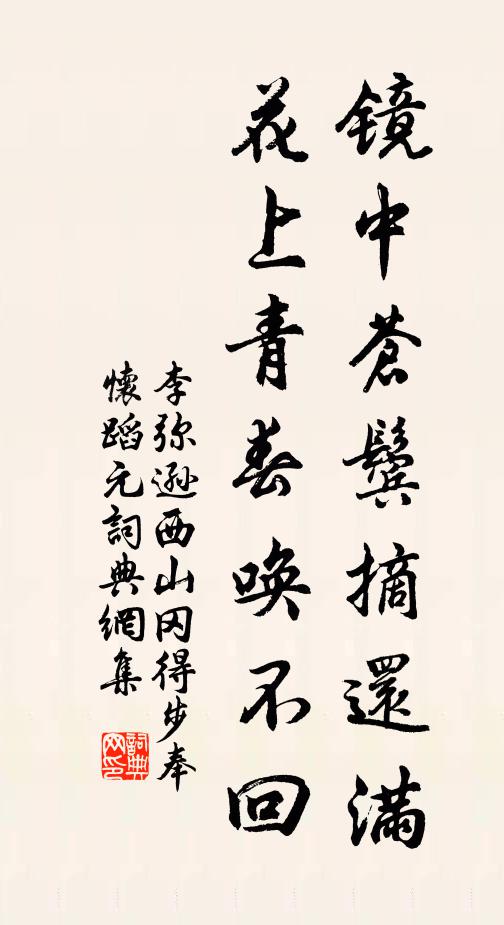 镜中蒼鬓摘還滿
花上青春唤不回
李弥遜西山冈得步奉
懷蹈元詞典網集
詞典网印